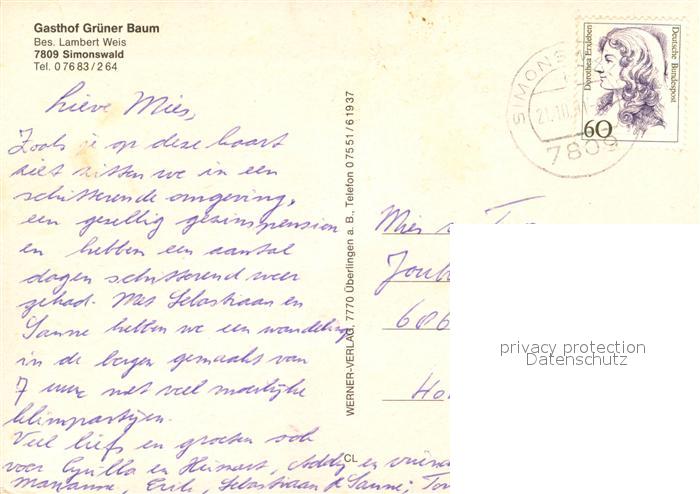 Gasthof Grüner Baum
Bes. Lambert Weis
7809 Simonswald
Tel. 07683/264
Lieve Mies,
Zoals je op deze kaart
ziet zitten we in een
schitterende omgeving,
een gezellig gezinspension
en hebben een aantal
dagen schitterend weer
gehad. Met Sebastiaan en
Sanne hebben we een wandeling
in de bergen gemaakt van
7 uur met veel moeilijke
klimpartijen.
Veel liefs en groeten ook
voor en
Marianne, Erik, Sebastiaan & Sanne;
WERNER-VERLAG, 7770 Überlingen a. B., Telefon 07551/61937
CL
Dorothea Erxleben
Deutsche Bundespost
60
7809
Mies
686
privacy protection
Datenschutz